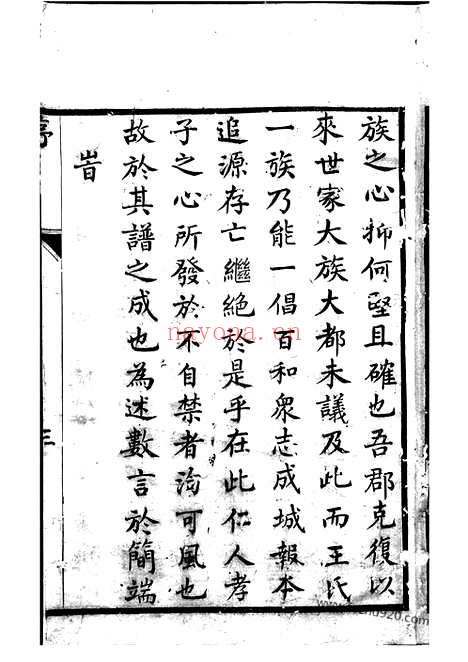 族之心抑何堅且確也吾郡克復以
來世家大族大都未議及此而王氏
一族乃能一倡百和衆志成城報本
追源存亡繼絶於是乎在此仁人孝
子之心所發於不自禁者洵可風也
故於其譜之成也為述數言於簡端
旹
序
三
nayona.cn